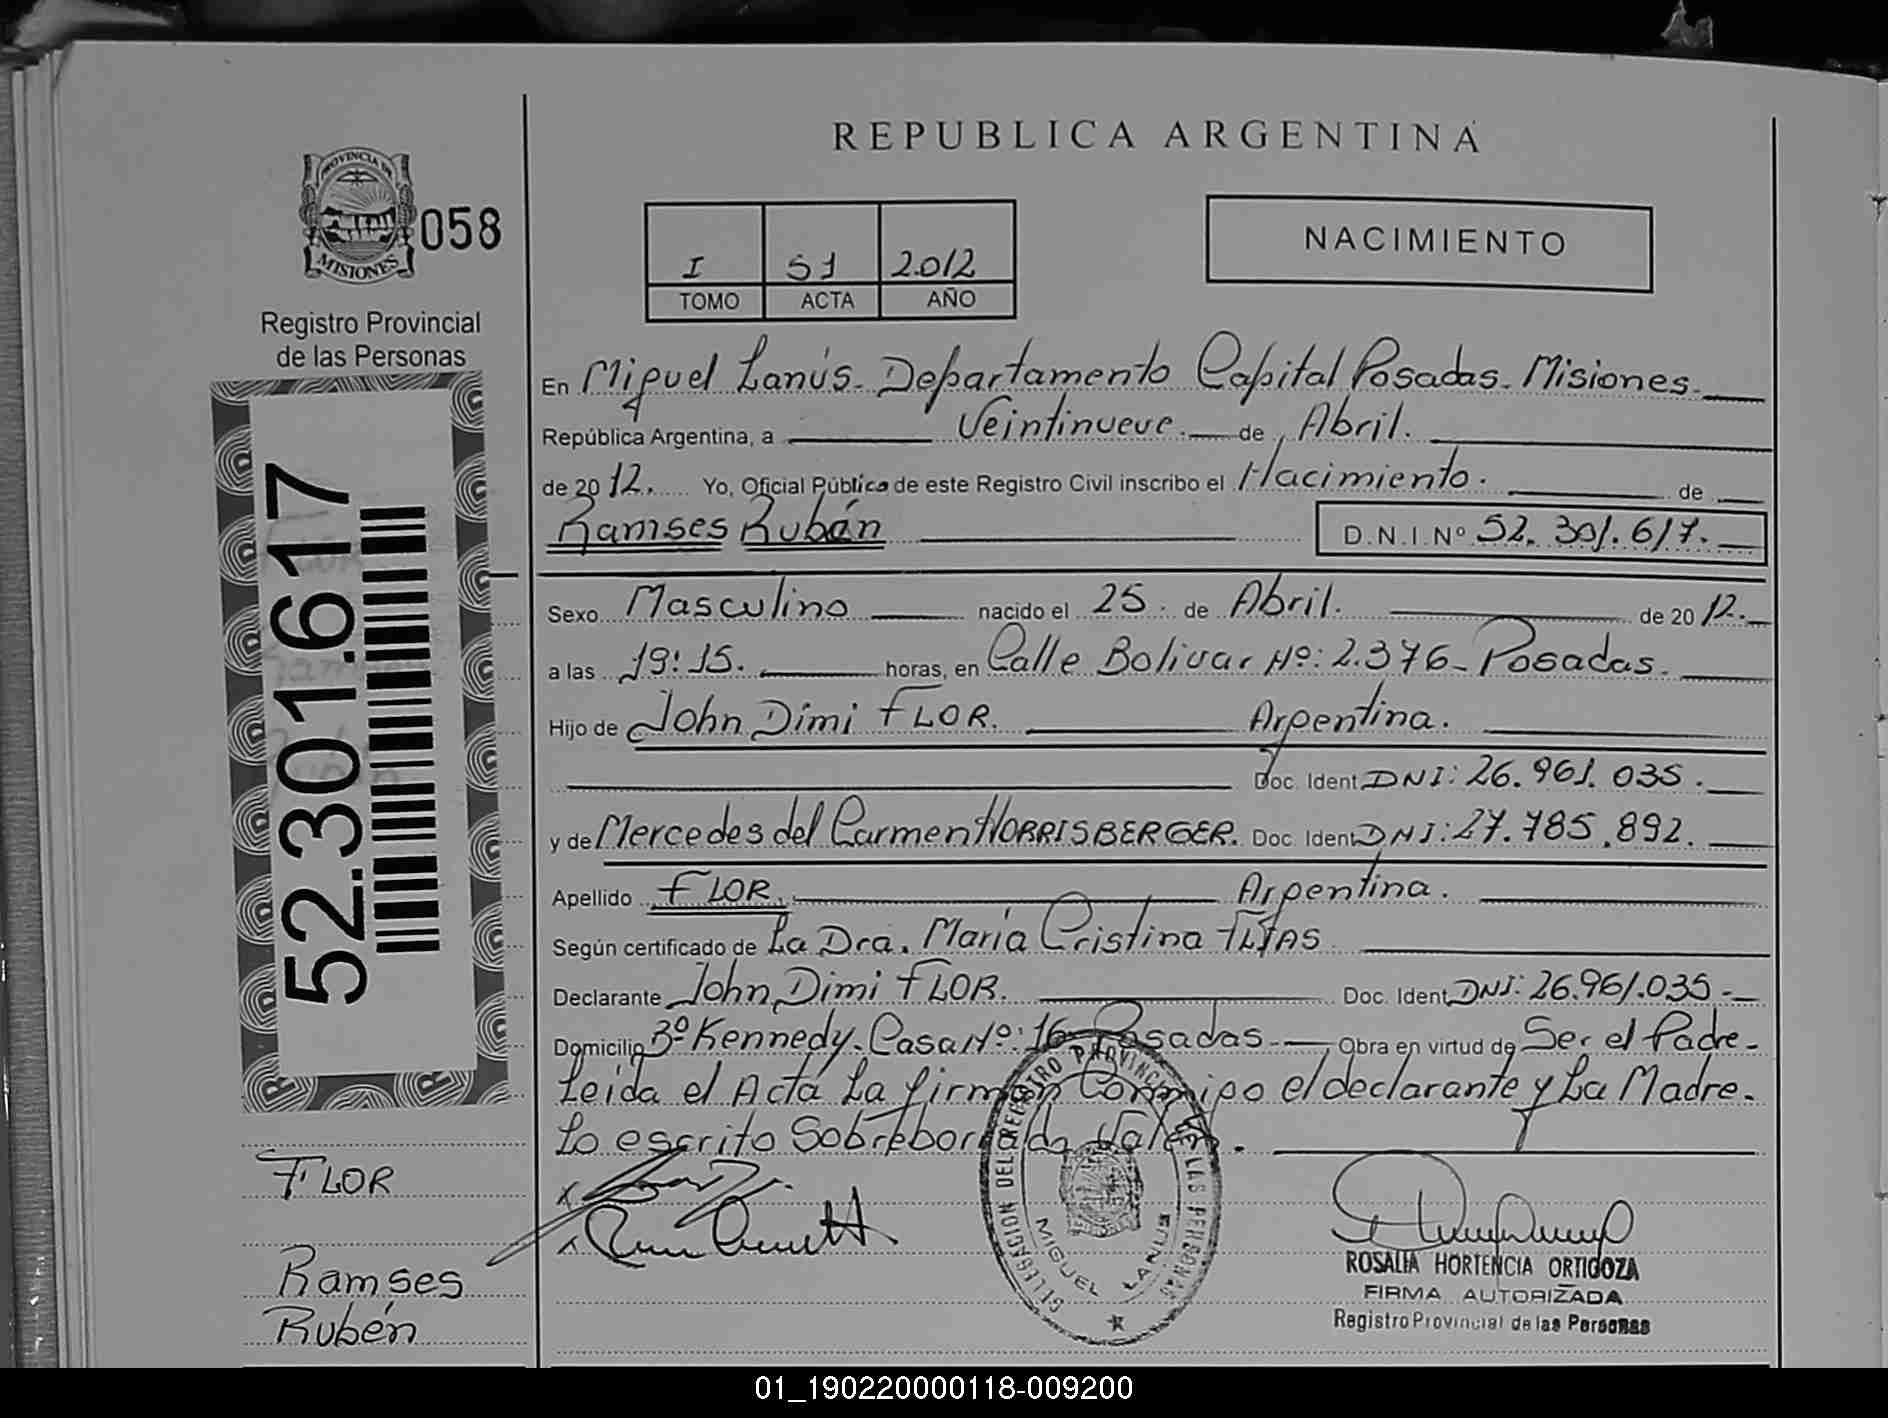 REPUBLICA ARGENTINA
PROVINCIA DE
MISIONES
058
Registro Provincial
de las Personas
52.301.617
I 51 2.012
TOMO ACTA AÑO
NACIMIENTO
En Miguel Lanús. Departamento Capital Posadas. Misiones.
República Argentina, a Veintinueve. de Abril.
de 2012. Yo, Oficial Público de este Registro Civil inscribo el Nacimiento. de
Ramses Rubén D.N.I.Nº 52.301.617.
Sexo Masculino nacido el 25. de Abril. de 2012.
a las 19:15. horas, en Calle Bolivar Nº: 2.376 - Posadas.
Hijo de John Dimi FLOR. Argentina.
Doc. Ident. DNI: 26.961.035.
y de Mercedes del Carmen HORRISBERGER. Doc. Ident. DNI: 27.785.892.
Apellido FLOR. Argentina.
Según certificado de La Dra. María Cristina
Declarante John Dimi FLOR. Doc. Ident. DNI: 26.961.035.-
Domicilio Bº Kennedy. Casa Nº: 16 Posadas.- Obra en virtud de Ser el Padre.
Leída el Acta La firman Conmigo el declarante y La Madre.
Lo escrito Sobreborrado Vale.
FLOR
Ramses
Rubén
DELEGACION DEL REGISTRO PROVINCIAL DE LAS PERSONAS
MIGUEL LANUS
ROSALIA HORTENCIA ORTIGOZA
FIRMA AUTORIZADA
Registro Provincial de las Personas
01_190220000118-009200